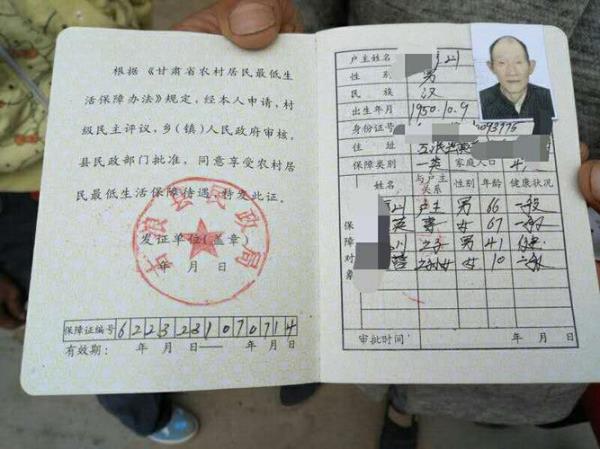 根据《甘肃省农村居民最低生
活保障办法》规定，经本人申请，村
级民主评议，乡（镇）人民政府审核，
县民政部门批准，同意享受农村居
民最低生活保障待遇，特发此证。
古浪县民政局
发证单位（盖章）
年 月 日
保障证编号 6223231070714
有效期： 年 月 日—— 年 月 日
户主姓名
性别 男
民族 汉
出生年月 1950.10.9
身份证号
住址 古浪县
保障类别 一类 家庭人口 4人
保障对象
姓名 与户主关系 性别 年龄 健康状况
户主 男 66 一般
英 妻 女 67 一般
之子 男 41
之孙女 女 10 一般
审批时间 年 月 日